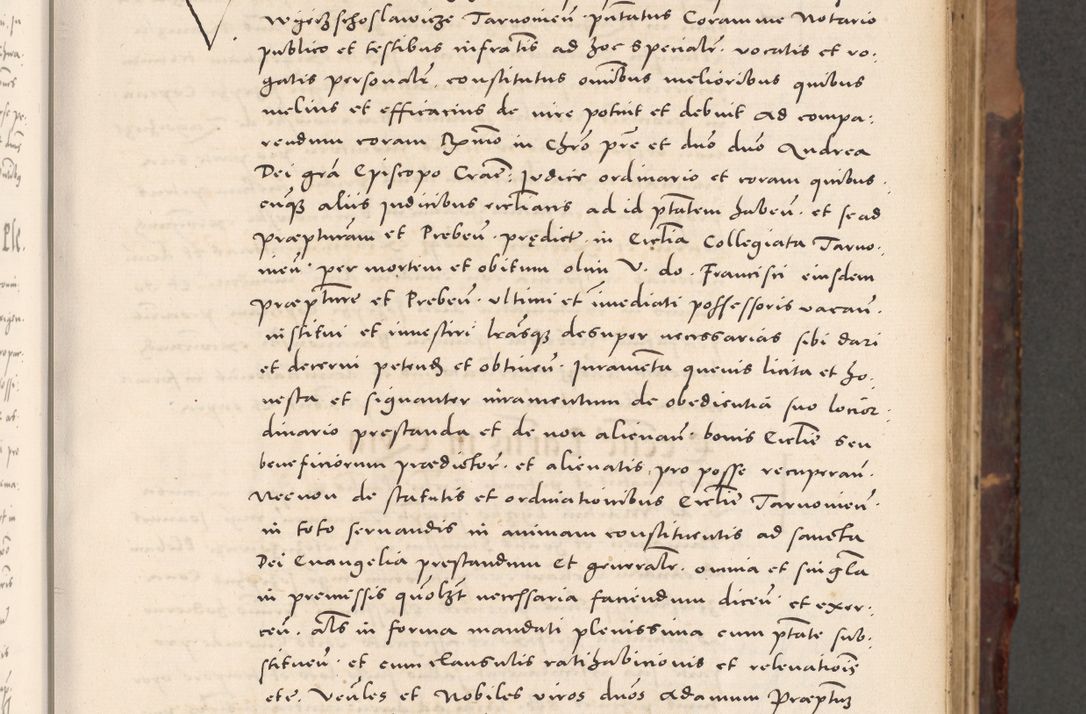 Wyerzschoslawicze Tarnovien̄ · pn̄tatus Coram me Notario
publico et testibus infrāctis ad hoc specialr̄ · vocatis et ro·
gatis personalr̄ · constitutus om̄ibus melioribus quibus
melius et efficatius de iure potuit et debuit ad compa:
rendum coram Rx̄mo in Chr̄o prē et dn̄o dn̄o Andrea
Dei grā Episcopo Crac̄: Judice ordinario et coram quibus·
cunq̨ aliis Judicibus ecclīaris ad id pt̄atem haben̄ · et se ad
præpturam et Preben̄ · prędict̄ · in Eccl̄ia Collegiata Tarno·
vien̄ · per mortem et obitum olim V · do · Francisci eiusdem
præpt̄uræ et Preben̄ · ultimi et im̄ediati possessoris vacan̄ ·
institui et investiri lr̄asq̨ desuper necessarias sibi dari
et decerni petend̄ et obtinen̄ · Juramen̄ta quevis licita et ho·
nesta et signanter iuramentum de obedientia suo loci or·
dinario prestanda et de non alienan̄ · bonis Eccl̄ie seu
beneficiorum prædictor̄ · et alienatis pro posse recuperan̄ ·
Necnon de statutis et ordinationibus Eccl̄ie Tarnovien̄ ·
in toto servandis in animam constituentis ad sancta
Dei Evangelia prestandum Et generalr̄ · omnia et singl̄a
in premissis quōlꝫt necessaria faciendum dicen̄ · et exer·
cen̄ · als̄ in forma mandati plenissima cum pt̄ate sub·
stituen̄ · et cum clausulis ratihabicionis et relevationis
etc̄ · Ven̄les et Nobiles viros dn̄os Adamum Præpt̄um